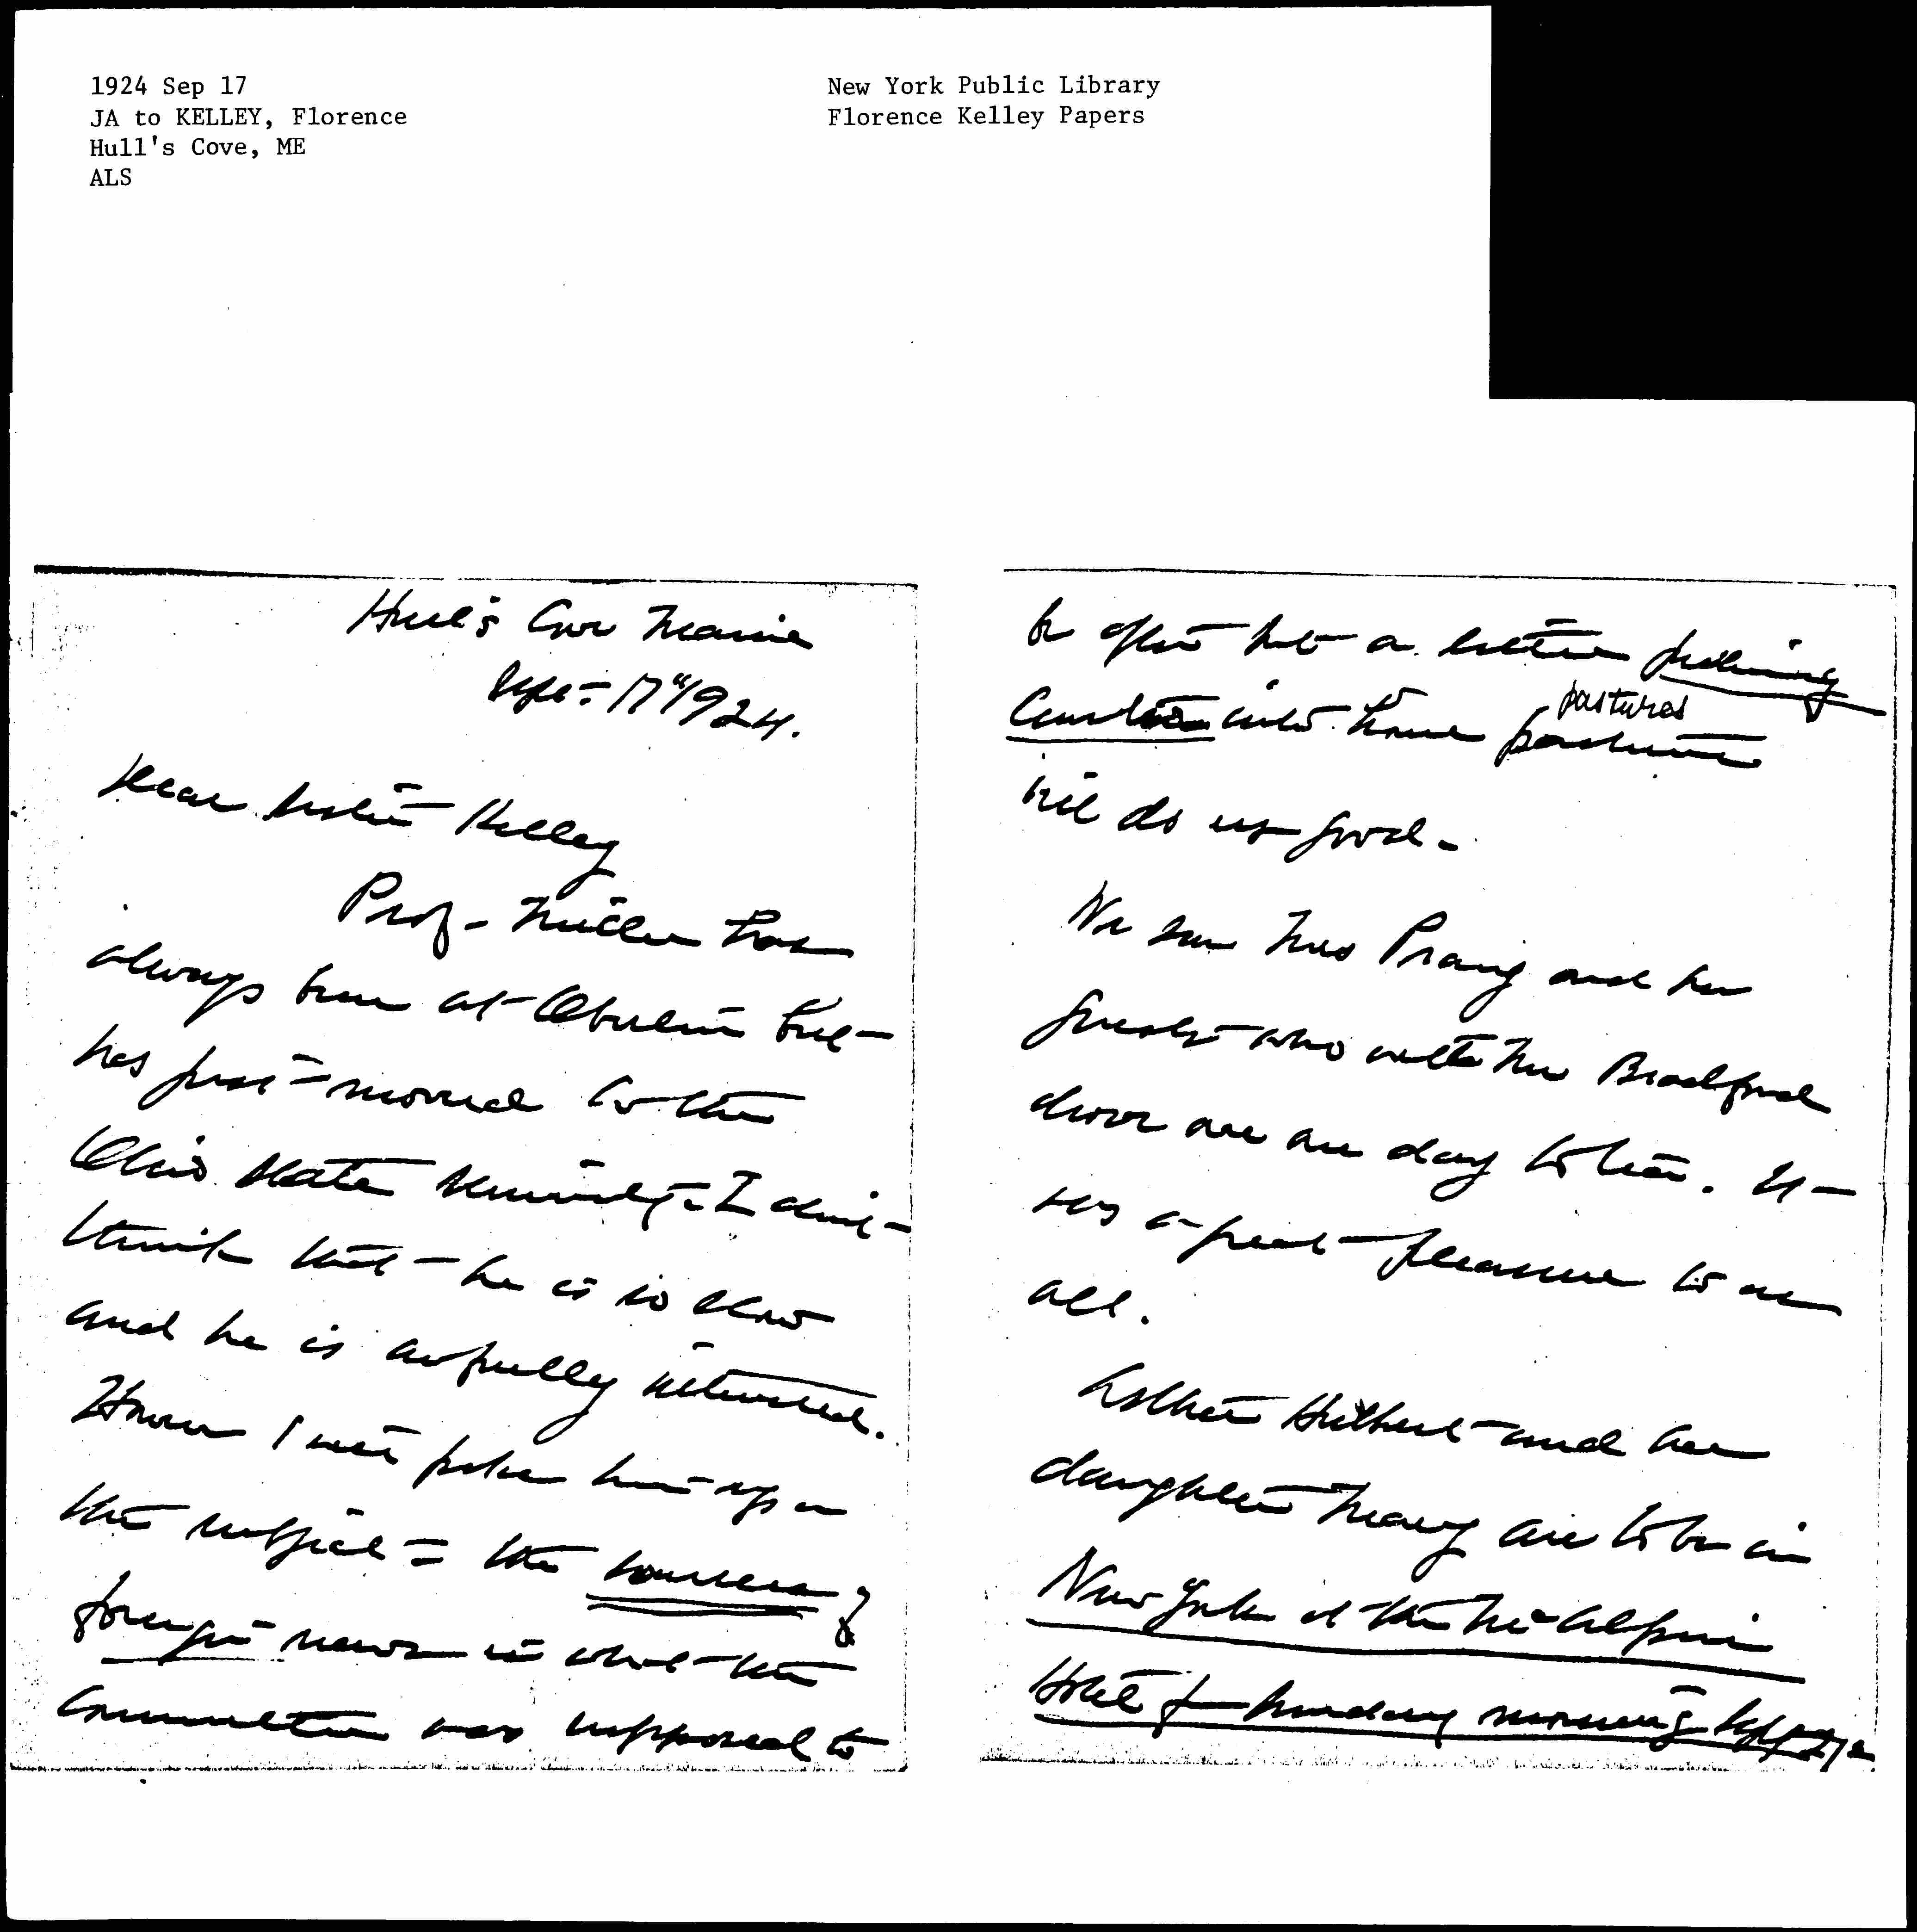 1924 Sep 17
JA to KELLEY, Florence
Hull's Cove, ME
ALS
New York Public Library
Florence Kelley Papers
Hull's Cove Maine
Sept- 17" 1924.
Dear Sister Kelley
Prof- Miller has
always been at Oberlin but
has just moved to the
Ohio State University. I don't
think that he is so slow
and he is awfully interested.
However I will poke him up on
the subject = the sources of
foreign news is what the
Committee was supposed to
be after but a letter
into home pastures
pastures
will do us good.
We saw Mrs Prang and her
guests who with Mrs Bradford
drove over one day to tea. It
was a great pleasure to us
all.
Esther Hulbert and her
daughter Mary are to be in
New York at the McAlpin
Hotel for Sunday morning Sept